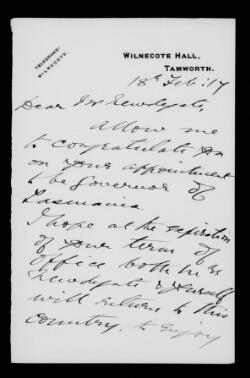 TELEGRAMS:
WILNECOTE.
WILNECOTE HALL,
TAMWORTH.
18th Feb: 17
Dear Mr Newdegate,
Allow me
to congratulate you
on your appointment
to be Governor of
Tasmania.
I hope at the expiration
of your term of
Office both Mrs
Newdegate & yourself
will return to this
country, to enjoy